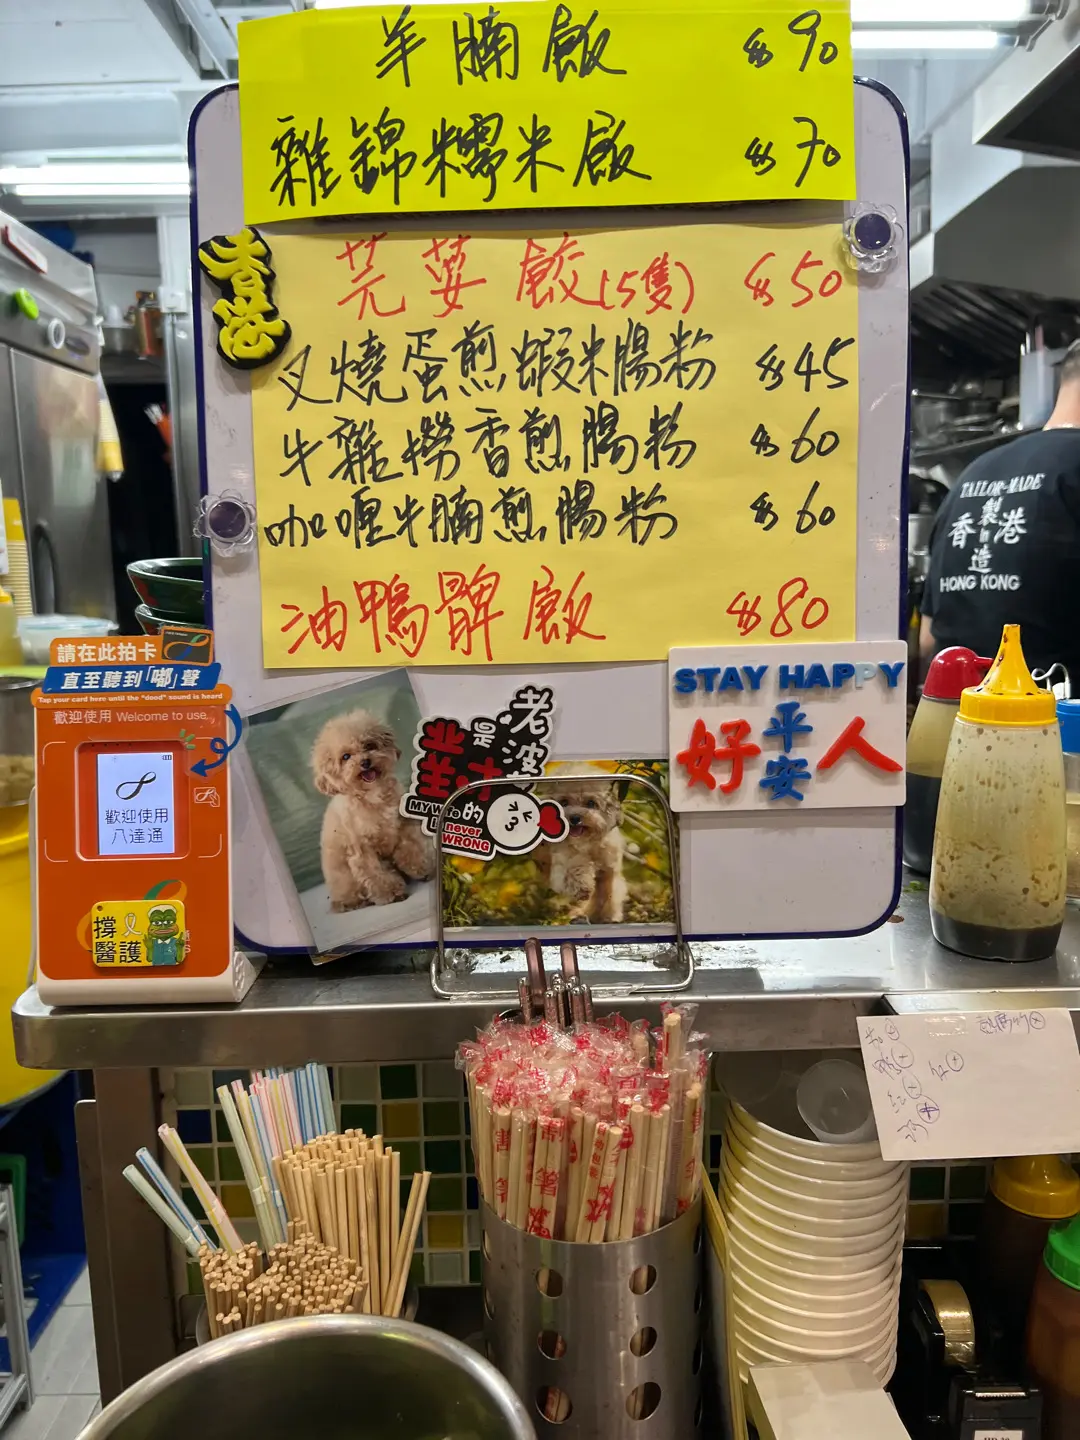 羊腩飯 $90
雜錦糯米飯 $70
香港
芫荽餃(5隻) $50
叉燒蛋煎蝦米腸粉 $45
牛雜撈香煎腸粉 $60
咖喱牛腩煎腸粉 $60
油鴨髀飯 $80
TAILOR-MADE
香製港
in
造
HONG KONG
請在此拍卡
直至聽到「嘟」聲
Tap your card here until the "dood" sound is heard
歡迎使用 Welcome to use
歡迎使用
八達通
撐
醫護
老婆
是
MY Wife
的
never
WRONG
STAY HAPPY
好平安人